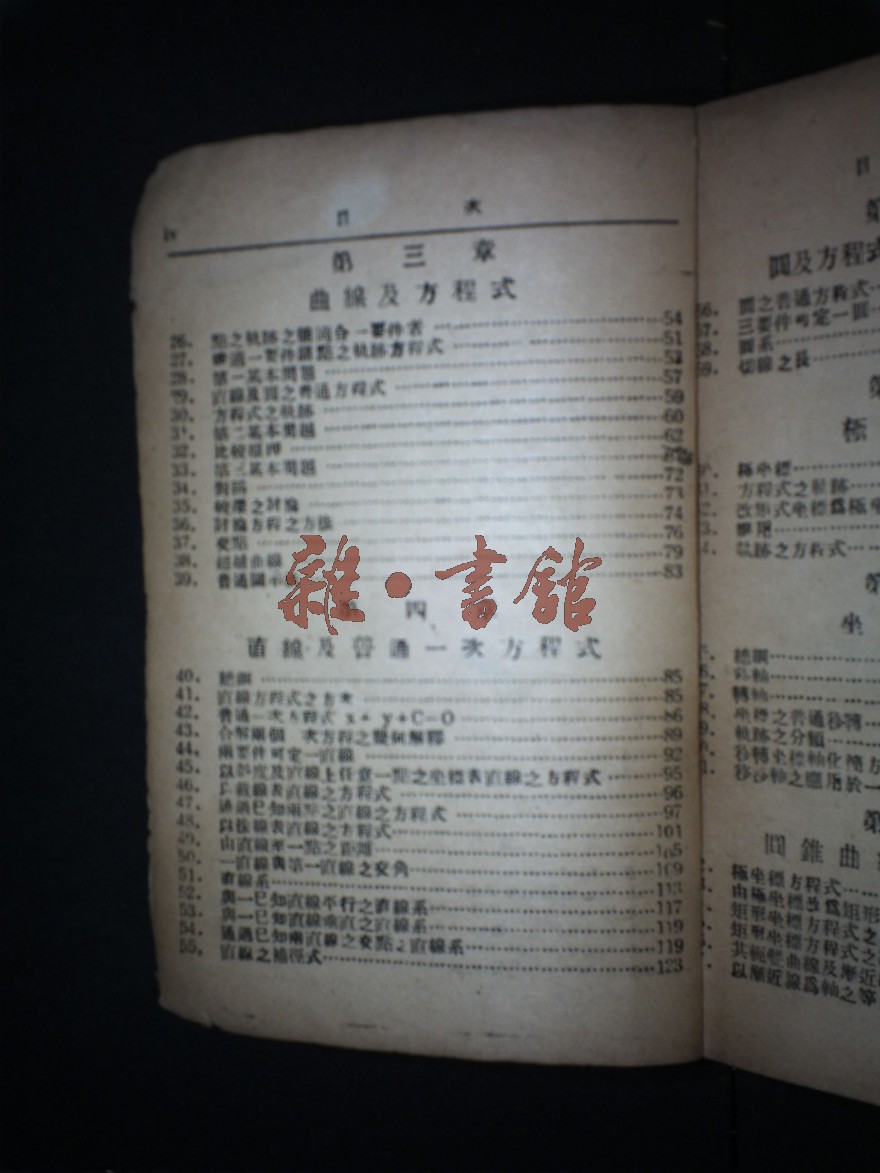 iv 目 次
第三章
曲線及方程式
26. 點之軌跡之適合一要件者 54
27. 適一要件諸點之軌跡方程式 51
28. 第一基本問題 53
29. 直線及圓之普通方程式 57
30. 方程式之軌跡 59
31. 第二基本問題 60
32. 比較原理 62
33. 第三基本問題
34. 對稱 72
35. 軌跡之討論 73
36. 討論方程之方法 74
37. 交點 76
38. 超越曲線 79
39. 普通圖示 83
雜·書館
第四
直線及普通一次方程式
40. 總綱 85
41. 直線方程式之方次 85
42. 普通一次方程式 x+ y+C=O 86
43. 合解兩個一次方程之幾何解釋 89
44. 兩要件可定一直線 92
45. 以斜度及直線上任意一點之坐標表直線之方程式 95
46. 以截線表直線之方程式 96
47. 通過已知兩點之直線之方程式 97
48. 以法線表直線之方程式 101
49. 由直線至一點之距離 105
50. 一直線與第一直線之交角 109
51. 直線系 113
52. 與一已知直線平行之直線系 117
53. 與一已知直線垂直之直線系 119
54. 通過已知兩直線之交點之直線系 119
55. 直線之 式 123
目
第
圓及方程式
56. 圓之普通方程式
57. 三要件可定一圓
58. 圓系
59. 切線之長
第
極
極坐標
方程式之軌跡
改形式坐標爲極坐
應用
軌跡之方程式
第
坐
總綱
移軸
轉軸
坐標之普通移轉
軌跡之分類
移轉坐標軸化簡方
移轉軸之應用於一
第
圓錐曲
極坐標方程式
由極坐標改爲矩形
矩形坐標方程式之
矩形坐標方程式之
共軛雙曲線及漸近
以漸近線爲軸之等